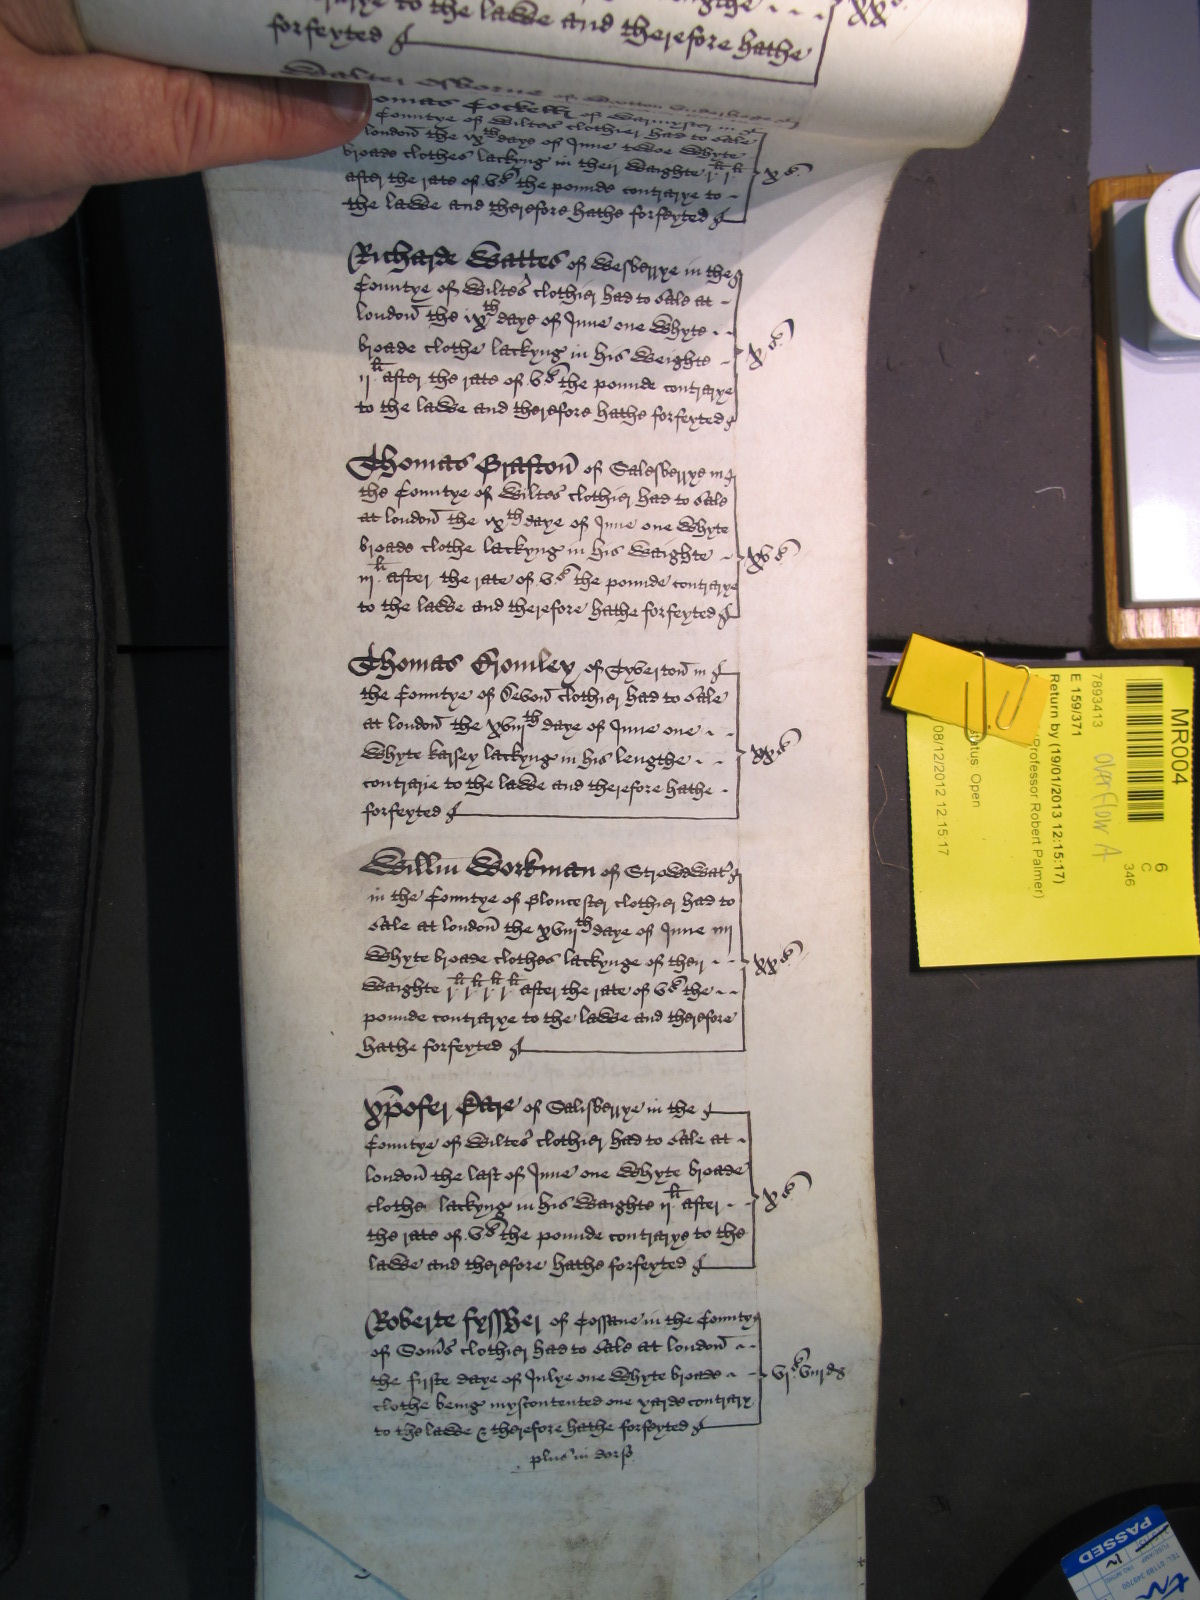 contrarye to the lawe and therefore hathe
forfeyted
xx s.
Walter Osborne of
Thomas Cockell of Warmyster in
Countye of Wiltes clothier had to sale
london the ixth daye of June towe Whyte
broade clothes lackyng in their Waighte j li j li
after the rate of vs the pounde contrarye to
the lawe and therefore hathe forfeyted
x s.
Richarde Wattes of Wesberye in the
Countye of Wiltes clothier had to sale at
london the ixth daye of June one Whyte
broade clothe lackyng in his Weighte
ij li after the rate of vs the pounde contrarye
to the lawe and therefore hathe forfeyted
x s.
Thomas Grafton of Salesberye in
the Countye of Wiltes clothier had to sale
at london the ixth daye of June one Whyte
broade clothe lackyng in his Waighte
iij li after the rate of vs the pounde contrarye
to the lawe and therefore hathe forfeyted
xv s.
Thomas Cromley of Tyverton in
the Countye of Devon clothier had to sale
at london the xviijth daye of June one
Whyte karsey lackyng in his lengthe
contrarie to the lawe and therefore hathe
forfeyted
xx s.
Willm Workman of Strowdwater
in the Countye of Gloucester clothier had to
sale at london the xviijth daye of June iiij
Whyte broade clothes lackynge of their
Waighte j li j li j li j li after the rate of vs the
pounde contrarye to the lawe and therefore
hathe forfeyted
xx s.
xpofer Kare of Salisberye in the
Countye of Wiltes clothier had to sale at
london the last of June one Whyte broade
clothe lackyng in his Waighte ij li after
the rate of vs the pounde contrarye to the
lawe and therefore hathe forfeyted
x s.
Roberte fyssher of in the County
of Soms clothier had to sale at london
the firste daye of Julye one Whyte broade
clothe being myscontented one yarde contrary
to the lawe & therefore hathe forfeyted
vj s viij d
plus in dorso
MR004
6
C
346
overflow A
7893413
E 159/371
Return by (19/01/2013 12:15:17)
(Professor Robert Palmer)
Status Open
08/12/2012 12:15:17
PASSED